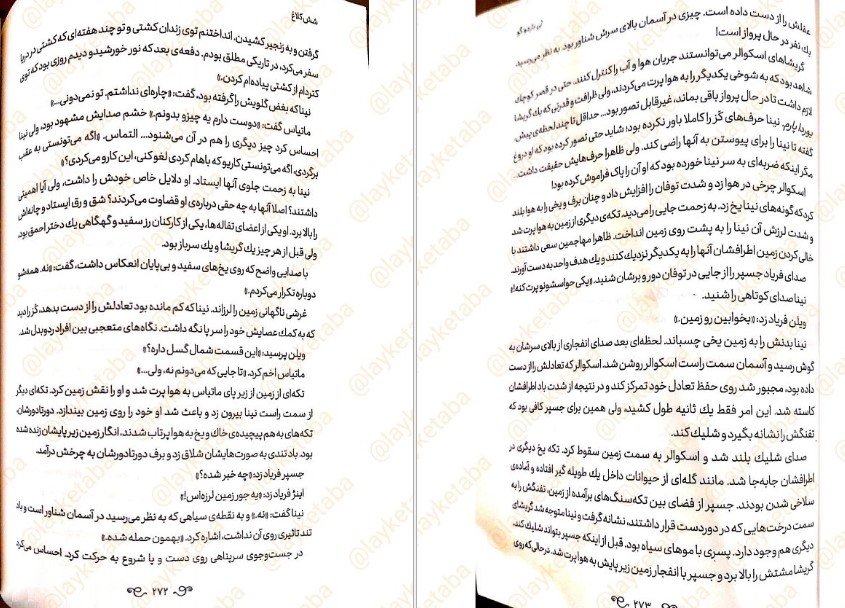 شش کلاغ
گرفتن و به زنجیر کشیدن. انداختنم توی زندان کشتی و تو چند هفته‌ای که کشتی در دریا
سفر می‌کرد، در تاریکی مطلق بودم. دفعه‌ی بعد که نور خورشید و دیدم روزی بود که توی
کتردام از کشتی پیاده‌ام کردن.»
نینا که بغض گلویش را گرفته بود، گفت: «چاره‌ای نداشتم. تو نمی‌دونی...»
ماتیاس گفت: «دوست دارم یه چیزو بدونم.» خشم صدایش مشهود بود، ولی نینا
احساس کرد چیز دیگری را هم در آن می‌شنود... التماس. «اگه می‌تونستی به عقب
برگردی، اگه می‌تونستی کاریو که باهام کردی لغو کنی، این کارو می‌کردی؟»
نینا به زحمت جلوی آنها ایستاد. او دلایل خاص خودش را داشت، ولی آیا اهمیتی
داشتند؟ اصلا آنها به چه حقی درباره‌ی او قضاوت می‌کردند؟ شق و رق ایستاد و چانه‌اش
را بالا برد. او یکی از اعضای تفاله‌ها، یکی از کارکنان رز سفید و گهگاهی یک دختر احمق بود
ولی قبل از هر چیز یک گریشا و یک سرباز بود.
با صدایی واضح که روی یخ‌های سفید و بی‌پایان انعکاس داشت، گفت: «نه. همه‌شو
دوباره تکرار می‌کردم.»
غرشی ناگهانی زمین را لرزاند. نینا که کم مانده بود تعادلش را از دست بدهد، کز را دید
که به کمک عصایش خود را سر پا نگه داشت. نگاه‌های متعجبی بین افراد رد و بدل شد.
ویلن پرسید: «این قسمت شمال گسل داره؟»
ماتیاس اخم کرد. «تا جایی که می‌دونم نه، ولی...»
تکه‌ای از زمین از زیر پای ماتیاس به هوا پرت شد و او را نقش زمین کرد. تکه‌ای دیگر
از سمت راست نینا بیرون زد و باعث شد او خود را روی زمین بیندازد. دور تا دورشان
تکه‌های به هم پیچیده‌ی خاک و یخ به هوا پرتاب شدند. انگار زمین زیر پایشان زنده شده
بود. باد تندی به صورت‌هایشان شلاق زد و برف دور تا دورشان به چرخش درآمد.
جسپر فریاد زد: «چه خبر شده؟»
اینژ فریاد زد: «یه جور زمین لرزه‌اس!»
نینا گفت: «نه.» و به نقطه‌ی سیاهی که به نظر می‌رسید در آسمان شناور است و باد
تند تاثیری روی آن نداشت، اشاره کرد. «بهمون حمله شده.»
در جست‌وجوی سرپناهی روی دست و پا شروع به حرکت کرد. احساس می‌کرد
۲۷۲
لی باردوگو
عقلش را از دست داده است. چیزی در آسمان بالای سرش شناور بود. به نظر می‌رسید
یک نفر در حال پرواز است!
گریشاهای اسکوالر می‌توانستند جریان هوا و آب را کنترل کنند. حتی در قصر کوچک
شاهد بود که به شوخی یکدیگر را به هوا پرت می‌کردند، ولی ظرافت و قدرتی که یک گریشا
لازم داشت تا در حال پرواز باقی بماند، غیرقابل تصور بود... حداقل تا چند لحظه‌ی پیش.
یوردا پارم. نینا حرف‌های کز را کاملا باور نکرده بود؛ شاید حتی تصور کرده بود که او دروغ
گفته تا نینا را برای پیوستن به آنها راضی کند. ولی ظاهرا حرف‌هایش حقیقت داشت...
مگر اینکه ضربه‌ای به سر نینا خورده بود که او آن را پاک فراموش کرده بود!
اسکوالر چرخی در هوا زد و شدت توفان را افزایش داد و چنان برف و یخی را به هوا بلند
کرد که گونه‌های نینا یخ زد. به زحمت جایی را می‌دید. تکه‌ی دیگری از زمین به هوا پرت شد
و شدت لرزش آن نینا را به پشت روی زمین انداخت. ظاهرا مهاجمین سعی داشتند با
خالی کردن زمین اطرافشان آنها را به یکدیگر نزدیک کنند و یک هدف واحد به دست آورند.
صدای فریاد جسپر را از جایی در توفان دور و برشان شنید. «یکی حواسشونو پرت کنه!»
نینا صدای کوتاهی را شنید.
ویلن فریاد زد: «بخوابین رو زمین.»
نینا بدنش را به زمین یخی چسباند. لحظه‌ای بعد صدای انفجاری از بالای سرشان به
گوش رسید و آسمان سمت راست اسکوالر روشن شد. اسکوالر که تعادلش را از دست
داده بود، مجبور شد روی حفظ تعادل خود تمرکز کند و در نتیجه از شدت باد اطرافشان
کاسته شد. این امر فقط یک ثانیه طول کشید، ولی همین برای جسپر کافی بود که
تفنگش را نشانه بگیرد و شلیک کند.
صدای شلیک بلند شد و اسکوالر به سمت زمین سقوط کرد. تکه یخ دیگری در
اطرافشان جابه‌جا شد. مانند گله‌ای از حیوانات داخل یک طویله گیر افتاده و آماده‌ی
سلاخی شدن بودند. جسپر از فضای بین تکه‌سنگ‌های برآمده از زمین، تفنگش را به
سمت درخت‌هایی که در دوردست قرار داشتند، نشانه گرفت و نینا متوجه شد گریشای
دیگری هم وجود دارد. پسری با موهای سیاه بود. قبل از اینکه جسپر بتواند شلیک کند،
گریشا مشتش را بالا برد و جسپر با انفجار زمین زیر پایش به هوا پرت شد. در حالی که روی
۲۷۳
@layketaba